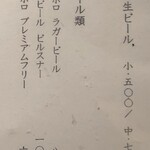 生ビール、 小・五〇〇/ 中・七
ール類
ポロ ラガービール
ビール ピルスナー 一〇
ポロ プレミアムフリー